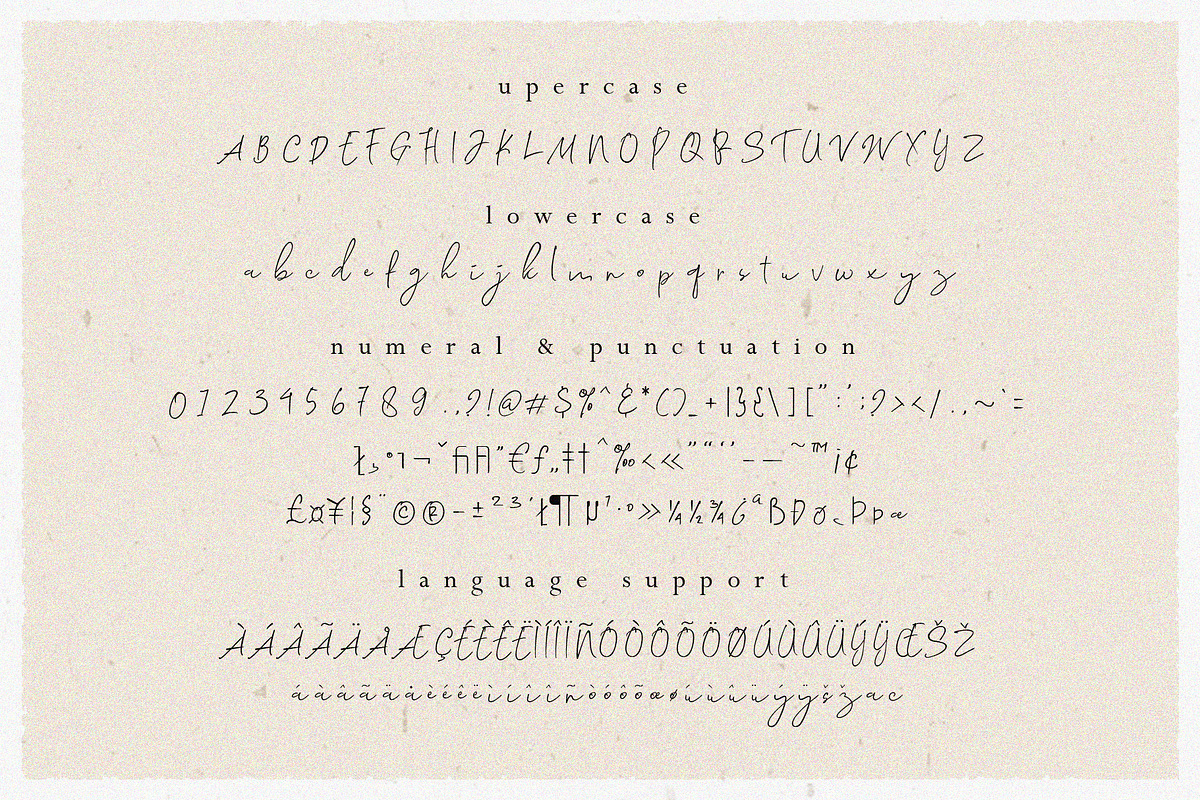 upercase
A B C D E F G H I J K L M N O P Q R S T U V W X Y Z
lowercase
a b c d e f g h i j k l m n o p q r s t u v w x y z
numeral & punctuation
0 1 2 3 4 5 6 7 8 9 . , ? ! @ # $ % ^ & * ( ) _ + | } { \ ] [ " : ' ; ? > < / . , ~ ` =
ł ¬ ˇ fi " € ƒ „ ‡ † ˆ ‰ < « ” “ ‘ ’ – — ˜ ™ ¡ ¢
£ ¤ ¥ ¦ § ¨ © ® - ± ² ³ ´ ł ¶ µ ¹ · º » ¼ ½ ¾ ¿ ª ß Ð ø ¸ Þ þ æ
language support
À Á Â Ã Ä Å Æ Ç É È Ê Ë Ì Í Î Ï Ñ Ó Ò Ô Õ Ö Ø Ú Ù Û Ü Ý Ÿ Œ Š Ž
á à â ã ä å è é ê ë ì í î ï ñ ò ó ô õ œ ø ú ù û ü ý ÿ š ž a c